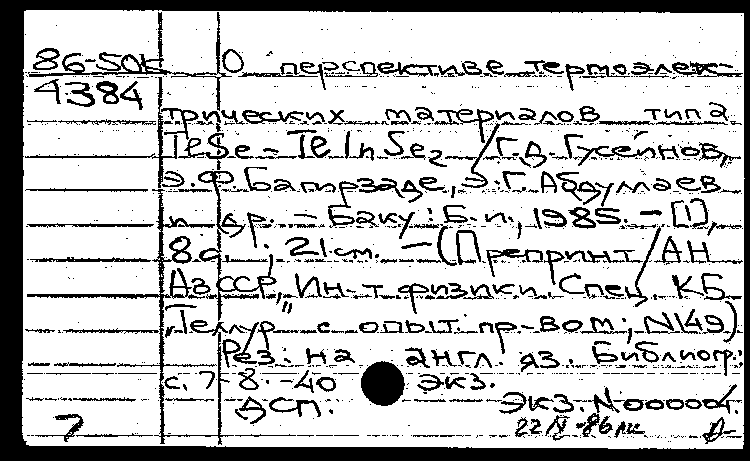 86-50К О перспективе термоэлек-
4384
трических материалов типа
TeSe - TeInSe2 / Г.Д. Гусейнов,
Э.Ф. Багирзаде, Э.Г. Абдуллаев
и др. - Баку: Б.и., 1985. - [1],
8с. ; 21см. - (Препринт / АН
АзССР, Ин-т физики. Спец. КБ
"Теллур" с опыт. пр-вом; N149)
Рез.: на англ. яз. Библиогр.:
с. 7-8. - 40 экз.
ДСП. Экз. N000004.
7 22 IV -86